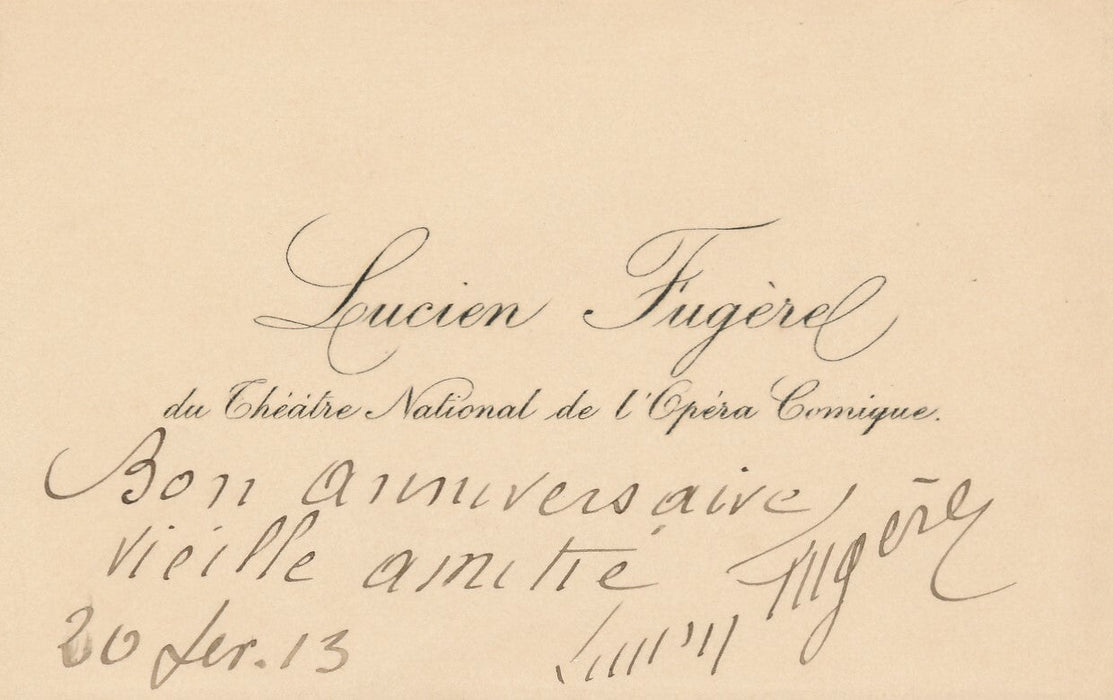 Lucien Fugère
du Théâtre National de l'Opéra Comique.
Bon anniversaire,
vieille amitié
20 fev. 13
Lucien Fugère